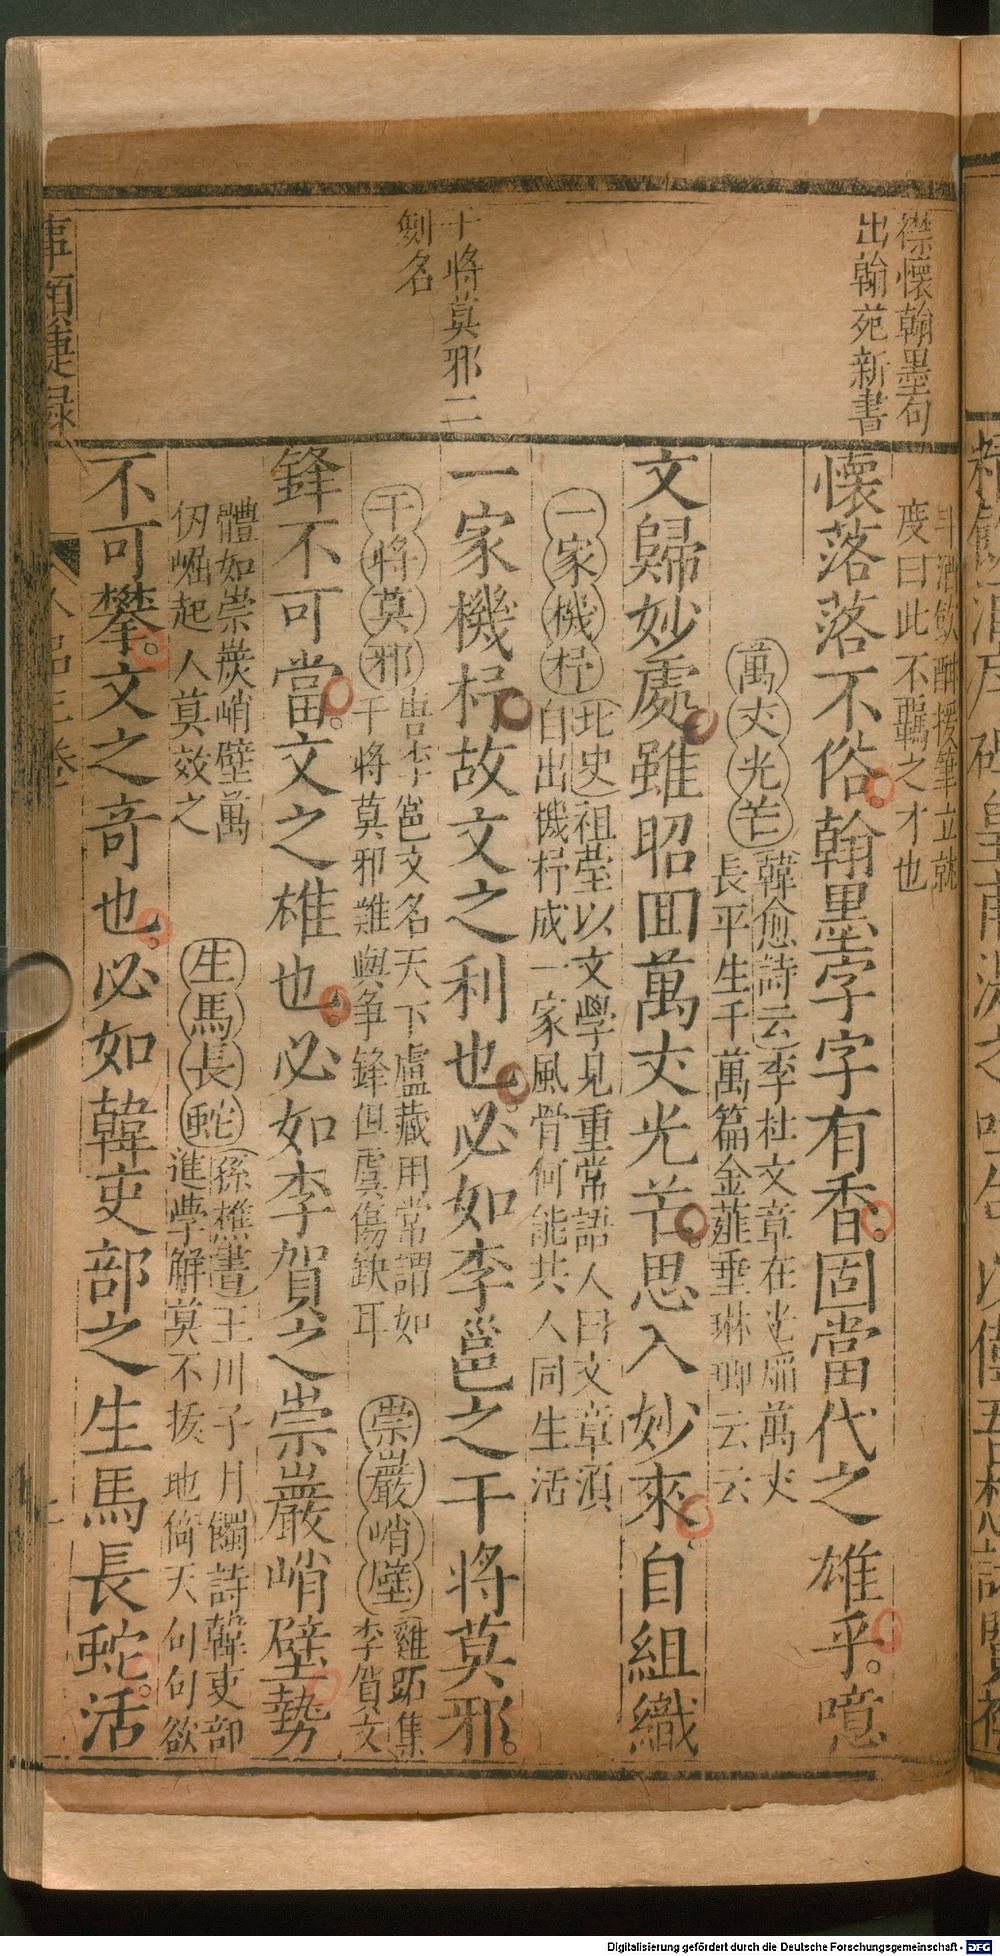 襟懷翰墨句
出翰苑新書
干將莫邪二
劍名
酒飲酣援筆立就
度曰此不羈之才也
懷落落不俗翰墨字字有香固當代之雄乎噫
萬丈光芒
韓愈詩云李杜文章在光熖萬丈
長平生千萬篇金薤垂琳瑯云云
文歸妙處雖昭回萬丈光芒思入妙來自組織
一家機杼
北史祖瑩以文學見重常語人曰文章須
自出機杼成一家風骨何能共人同生活
一家機杼故文之利也必如李邕之干將莫邪
干將莫邪
唐李邕文名天下盧藏用常謂如
干將莫邪難與爭鋒但虞傷缺耳
崇巖峭壁
雞跖集
李賀文
鋒不可當文之雄也必如李賀之崇巖峭壁勢
體如崇巖峭壁萬
仞崛起人莫效之
生馬長蛇
孫樵書王川子月蝕詩韓吏部
進學解莫不拔地倚天句句欲
不可攀文之奇也必如韓吏部之生馬長蛇活
事類捷錄
Digitalisierung gefördert durch die Deutsche Forschungsgemeinschaft - DFG